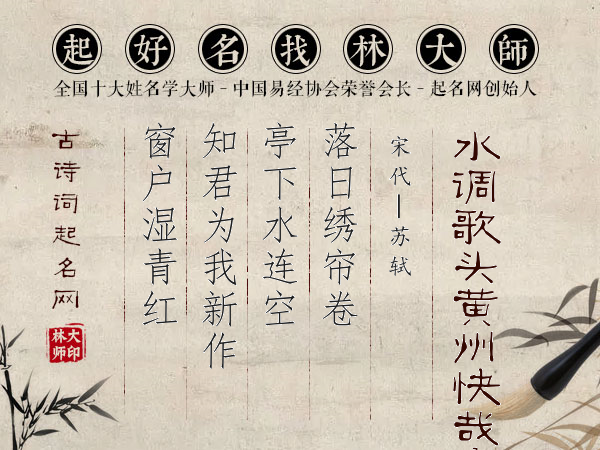 起好名找林大師
全国十大姓名学大师 - 中国易经协会荣誉会长 - 起名网创始人
水调歌头黄州快哉
宋代—苏轼
落日绣帘卷
亭下水连空
知君为我新作
窗户湿青红
古诗词起名网
大印
林师